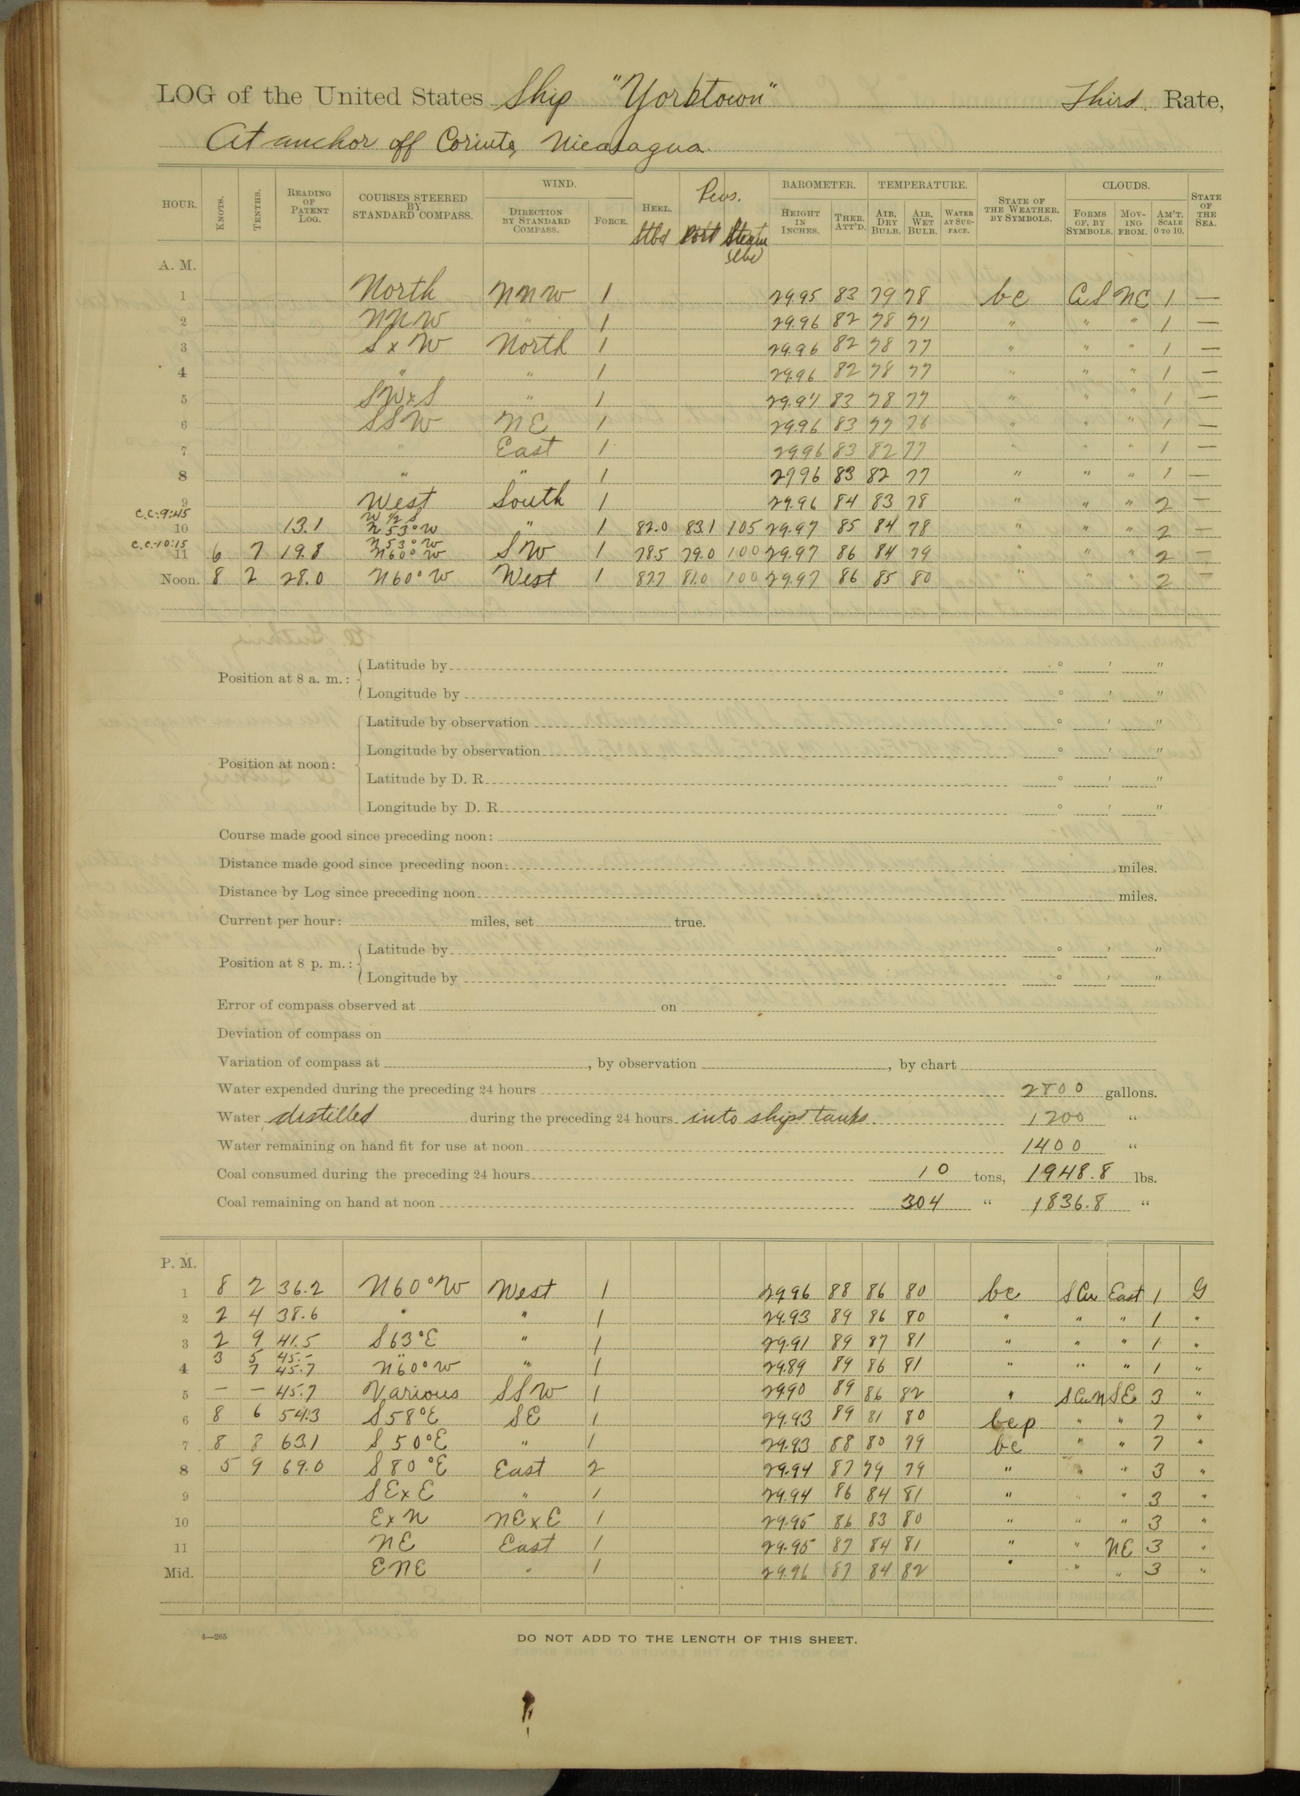 LOG of the United States Ship "Yorktown" Third Rate,
At anchor off Corinto, Nicaragua.
HOUR. KNOTS. TENTHS. READING OF PATENT LOG. COURSES STEERED BY STANDARD COMPASS. WIND. DIRECTION BY STANDARD COMPASS. FORCE. HEEL. Revs. Stbd Port Steam BAROMETER. HEIGHT IN INCHES. THER. ATT'D. TEMPERATURE. AIR, DRY BULB. AIR, WET BULB. WATER AT SUR-FACE. STATE OF THE WEATHER, BY SYMBOLS. CLOUDS. FORMS OF, BY SYMBOLS. MOV-ING FROM. AM'T. SCALE 0 TO 10. STATE OF THE SEA.
A. M.
1 North NNW 1 29.95 83 79 78 bc CiS NE 1 —
2 NNW " 1 29.96 82 78 77 " " " 1 —
3 SxW North 1 29.96 82 78 77 " " " 1 —
4 " " 1 29.96 82 78 77 " " " 1 —
5 SWxS " 1 29.97 83 78 77 " " " 1 —
6 SSW NE 1 29.96 83 77 76 " " " 1 —
7 " East 1 29.96 83 82 77 " " " 1 —
8 " " 1 29.96 83 82 77 " " " 1 —
9 West South 1 29.96 84 83 78 " " " 2 —
C.C. 9:45 W ½ S
10 13.1 N53°W " 1 82.0 83.1 105 29.97 85 84 78 " " " 2 —
C.C. 10:15 N53°W
11 6 7 19.8 N60°W SW 1 78.5 79.0 100 29.97 86 84 79 " " " 2 —
Noon. 8 2 28.0 N60°W West 1 82.7 81.0 100 29.97 86 85 80 " " " 2 —
Position at 8 a. m.: Latitude by ° ' "
Longitude by ° ' "
Position at noon: Latitude by observation ° ' "
Longitude by observation ° ' "
Latitude by D. R. ° ' "
Longitude by D. R. ° ' "
Course made good since preceding noon:
Distance made good since preceding noon: miles.
Distance by Log since preceding noon miles.
Current per hour: miles, set true.
Position at 8 p. m.: Latitude by ° ' "
Longitude by ° ' "
Error of compass observed at on
Deviation of compass on
Variation of compass at , by observation , by chart
Water expended during the preceding 24 hours 2800 gallons.
Water distilled during the preceding 24 hours into ships tanks. 1200 "
Water remaining on hand fit for use at noon 1400 "
Coal consumed during the preceding 24 hours 10 tons, 1948.8 lbs.
Coal remaining on hand at noon 304 " 1836.8 "
P. M.
1 8 2 36.2 N60°W West 1 29.96 88 86 80 bc SCu East 1 G
2 2 4 38.6 " " 1 29.93 89 86 80 " " " 1 "
3 2 9 41.5 S63°E " 1 29.91 89 87 81 " " " 1 "
3 5 45.-
4 7 45.7 N60°W " 1 29.89 89 86 81 " " " 1 "
5 — — 45.7 Various SSW 1 29.90 89 86 82 " SCuN SE 3 "
6 8 6 54.3 S58°E SE 1 29.93 89 81 80 bcp " " 7 "
7 8 8 63.1 S50°E " 1 29.93 88 80 79 bc " " 7 "
8 5 9 69.0 S80°E East 2 29.94 87 79 79 " " " 3 "
9 SExE " 1 29.94 86 84 81 " " " 3 "
10 ExN NExE 1 29.95 86 83 80 " " " 3 "
11 NE East 1 29.95 87 84 81 " " NE 3 "
Mid. ENE " 1 29.96 87 84 82 " " " 3 "
4—265 DO NOT ADD TO THE LENGTH OF THIS SHEET.